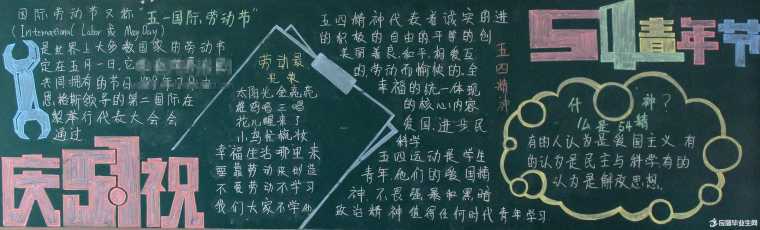 国际劳动节又称"五一国际劳动节"
(International Labor 或 May Day)
是世界上大多数国家的劳动节
定在五月一日,它
共同拥有的节日 1889年7月由
恩格斯领导的第二国际在
黎举行代表大会会
通过
庆51祝
劳动最
光荣
太阳光金亮亮
雄鸡唱三唱
花儿醒来了
小鸟忙梳妆
幸福生活哪里来
要靠劳动来创造
不要劳动不学习
我们大家不学他
五四精神代表着诚实的进
的积极的自由的平等的创
美丽善良,和平,相爱互
的,劳动而愉快的,全
幸福的统一体现
的核心内容
爱国,进步民
科学
五四运动是学生
青年他们的爱国精
神,不畏强暴和黑暗
政治精神值得任何时代青年学习
五四精神
54青年节
什 神?
么是54精
有的人认为是爱国主义 有
的认为是民主与科学有的
认为是解放思想。
应届毕业生网